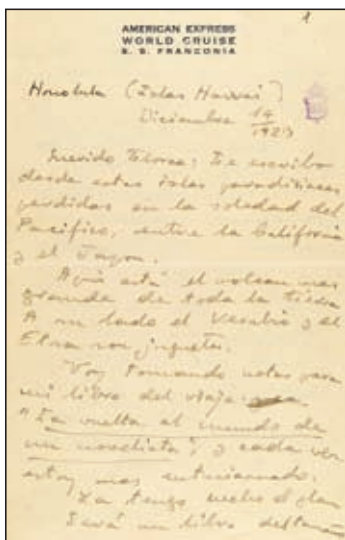 1
AMERICAN EXPRESS
WORLD CRUISE
S. S. FRANCONIA
Honolulu (Islas Hawai)
Diciembre 14
1923
Querido Te escribo
desde estas islas paradisiacas
perdidas en la soledad del
Pacifico, entre la California
y el Japon.
Aquí está el volcan mas
grande de toda la tierra
A su lado el Vesubio y el
Etna son juguetes.
Voy tomando notas para
mi libro del viaje
"La vuelta al mundo de
un novelista", y cada vez
estoy mas entusiasmado.
Ya tengo hecho el plan
Será un libro